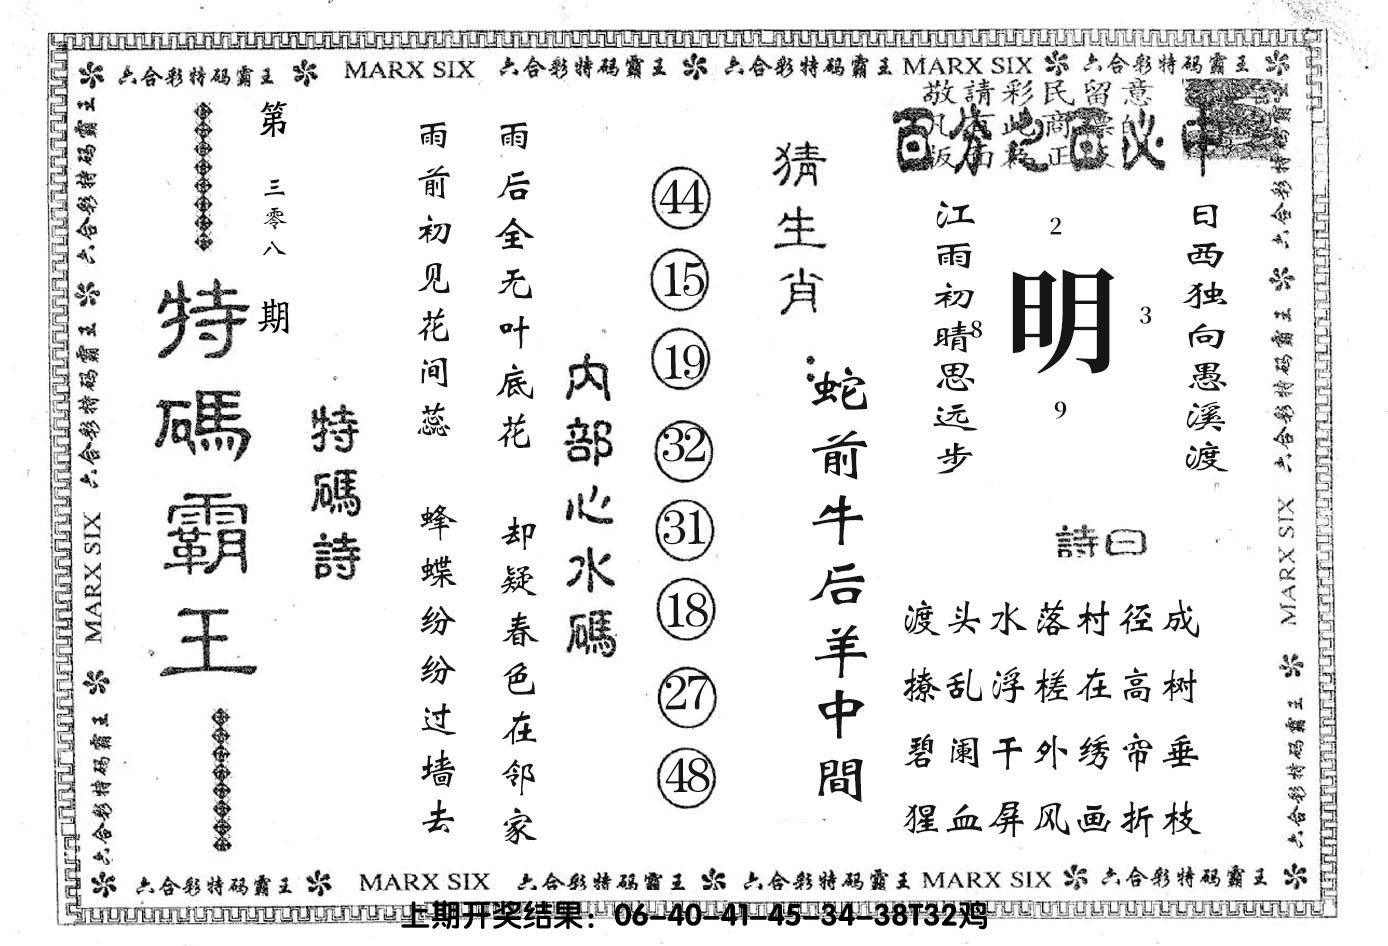 六合彩特码霸王 MARX SIX 六合彩特码霸王 六合彩特码霸王 MARX SIX 六合彩特码霸王
敬請彩民留意
百
中
日西独向愚溪渡
江雨初晴思远步
2
明
3
8
9
詩曰
渡头水落村径成
撩乱浮槎在高树
碧阑干外绣帘垂
猩血屏风画折枝
猜生肖:
蛇前牛后羊中間
44
15
19
32
31
18
27
48
内部心水碼
雨后全无叶底花 却疑春色在邻家
雨前初见花间蕊 蜂蝶纷纷过墙去
特碼詩
第三零八期
特碼霸王
六合彩特码霸王 六合彩特码霸王 MARX SIX 六合彩特码霸王
六合彩特码霸王 六合彩特码霸王 MARX SIX 六合彩特码霸王
六合彩特码霸王 MARX SIX 六合彩特码霸王 六合彩特码霸王 MARX SIX 六合彩特码霸王
上期开奖结果：06-40-41-45-34-38T32鸡